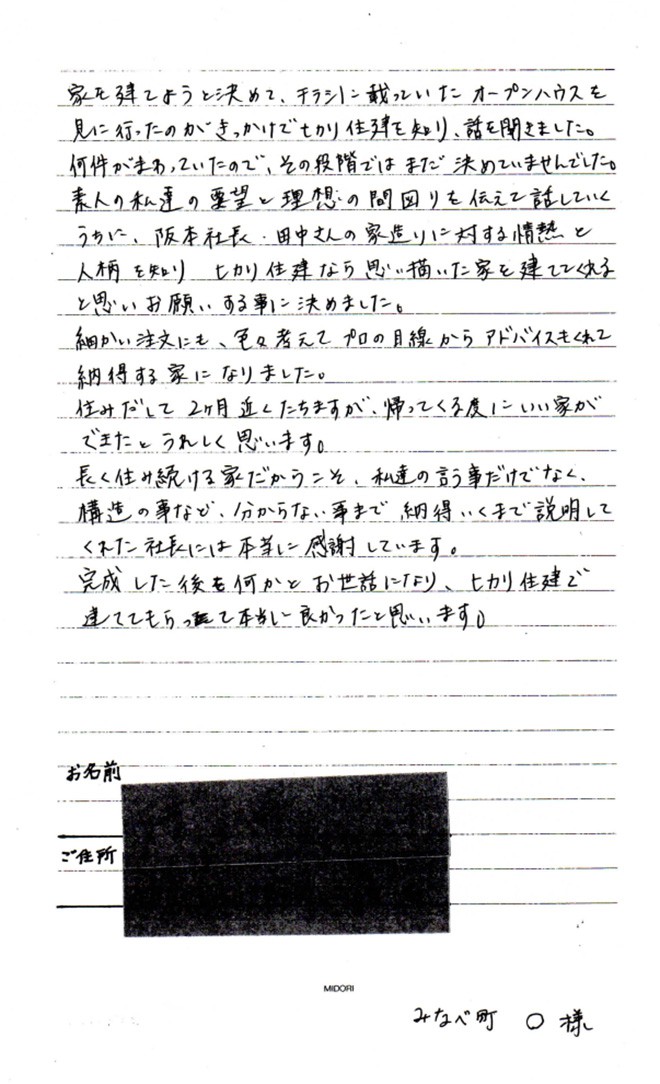 家を建てようと決めて、チラシに載っていたオープンハウスを
見に行ったのがきっかけでヒカリ住建を知り、話を聞きました。
何件かまわっていたので、その段階ではまだ決めていませんでした。
素人の私達の要望と理想の間図りを伝えて話していく
うちに、阪本社長・田中さんの家造りに対する情熱と
人柄を知り ヒカリ住建なら思い描いた家を建ててくれる
と思いお願いする事に決めました。
細かい注文にも、色々考えて プロの目線からアドバイスもくれて
納得する家になりました。
住みだして2ヶ月近くたちますが、帰ってくる度にいい家が
できたとうれしく思います。
長く住み続ける家だからこそ、私達の言う事だけでなく、
構造の事など、分からない事まで 納得いくまで説明して
くれた社長には本当に感謝しています。
完成した後も何かとお世話になり、ヒカリ住建で
建ててもらって本当に良かったと思います。
お名前
ご住所
MIDORI
みなべ町 〇 様